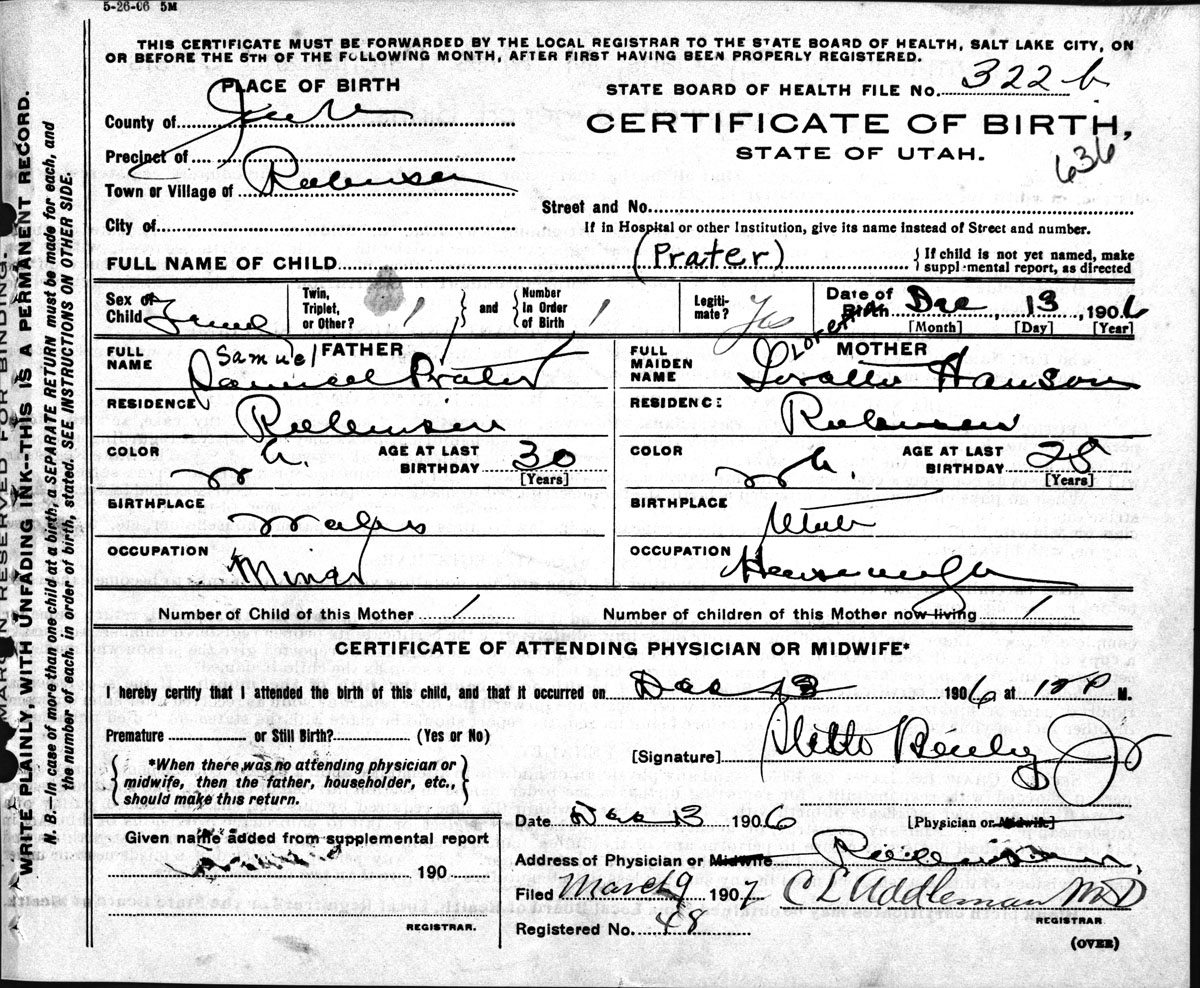 5-26-06 5M
THIS CERTIFICATE MUST BE FORWARDED BY THE LOCAL REGISTRAR TO THE STATE BOARD OF HEALTH, SALT LAKE CITY, ON
OR BEFORE THE 5TH OF THE FOLLOWING MONTH, AFTER FIRST HAVING BEEN PROPERLY REGISTERED.
PLACE OF BIRTH
STATE BOARD OF HEALTH FILE NO. 322 b
County of Juab
CERTIFICATE OF BIRTH,
STATE OF UTAH.
636
Precinct of
Town or Village of Robinson
Street and No.
City of
If in Hospital or other Institution, give its name instead of Street and number.
FULL NAME OF CHILD (Prater) { If child is not yet named, make
supplemental report, as directed
Sex of Child
Twin, Triplet, or Other? 1 } and { Number In Order of Birth 1
Legiti-mate? Yes
Date of Birth Dec 13, 1906
[Month] [Day] [Year]
FATHER
FULL NAME Samuel
Samuel Prater
MOTHER
FULL MAIDEN NAME Loretta
Loratta Hanson
RESIDENCE Robinson
RESIDENCE Robinson
COLOR Wh. AGE AT LAST BIRTHDAY 30 [Years]
COLOR Wh. AGE AT LAST BIRTHDAY 28 [Years]
BIRTHPLACE Wales
BIRTHPLACE Utah
OCCUPATION Miner
OCCUPATION Housewife
Number of Child of this Mother 1
Number of children of this Mother now living 1
CERTIFICATE OF ATTENDING PHYSICIAN OR MIDWIFE*
I hereby certify that I attended the birth of this child, and that it occurred on Dec 13 1906 at P M.
Premature or Still Birth? (Yes or No)
[Signature]
*When there was no attending physician or
midwife, then the father, householder, etc.,
should make this return.
Date Dec 13 1906 [Physician or Midwife]
Given name added from supplemental report
190
REGISTRAR.
Address of Physician or Midwife Robinson
Filed March 9 1907 C E Addleman MD
REGISTRAR
Registered No. 48
(OVER)
MARGIN RESERVED FOR BINDING.
WRITE PLAINLY WITH UNFADING INK--THIS IS A PERMANENT RECORD.
N. B.--In case of more than one child at a birth, a SEPARATE RETURN must be made for each, and
the number of each, in order of birth, stated. SEE INSTRUCTIONS ON OTHER SIDE.